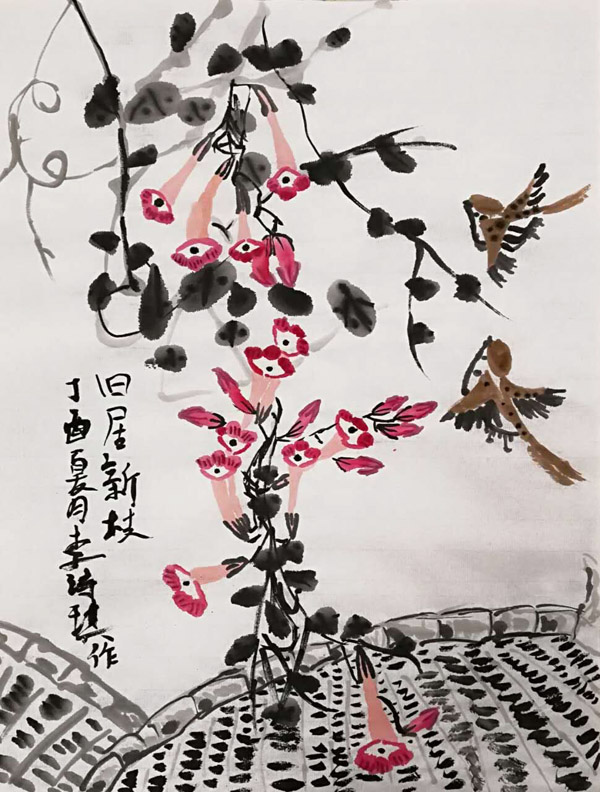 旧居新枝
丁酉夏月李琪作